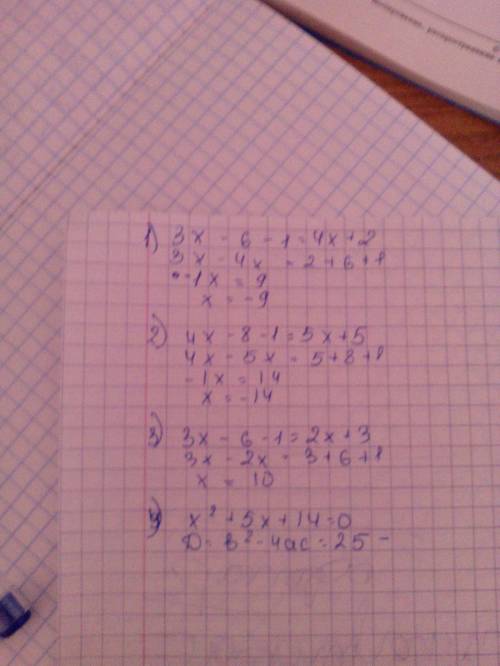 1) 3x - 6 - 1 = 4x + 2
3x - 4x = 2 + 6 + 1
-1x = 9
x = -9
2) 4x - 8 - 1 = 5x + 5
4x - 5x = 5 + 8 + 1
-1x = 14
x = -14
3) 3x - 6 - 1 = 2x + 3
3x - 2x = 3 + 6 + 1
x = 10
4) x² + 5x + 14 = 0
D = b² - 4ac = 25 -